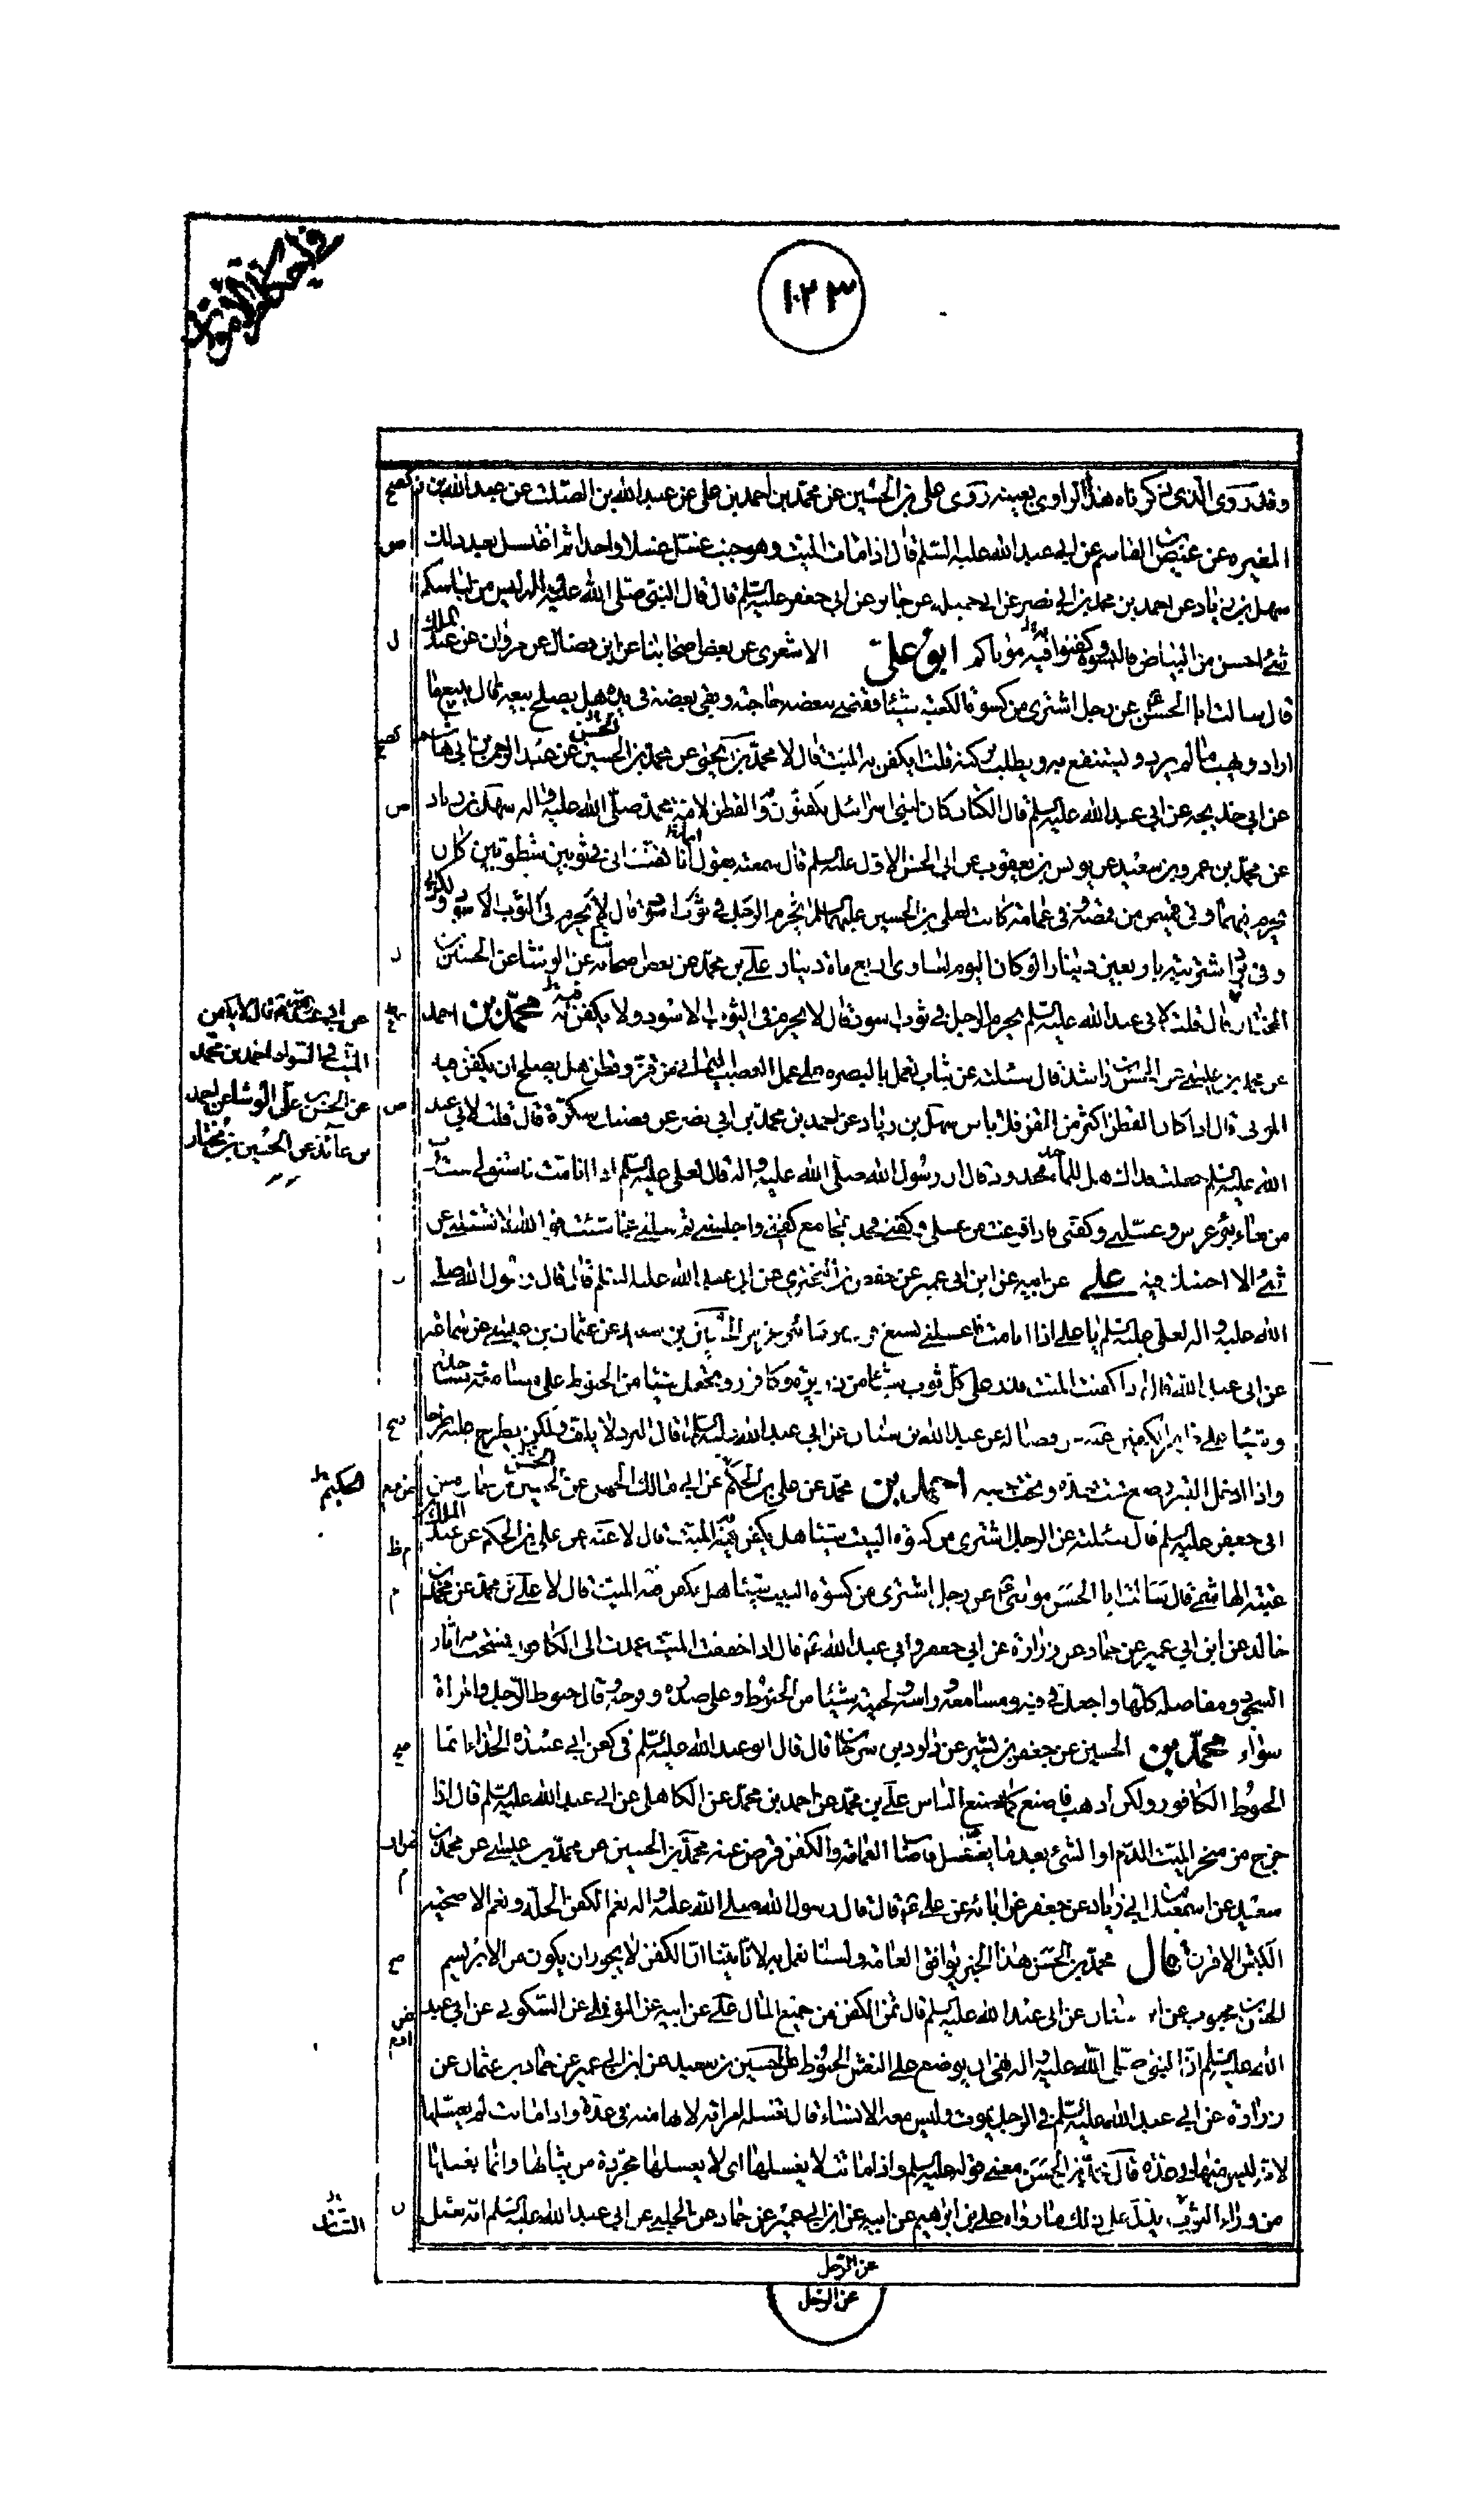 ١٠٢٣
وقد روى الذي ذكرناه هذا الراوي بعينه روى علي بن الحسين عن محمد بن احمد بن علي عن عبدالله بن الصلت عن عبدالله بن
المغيره عن عيص بن القاسم عن ابي عبدالله عليه السلم قال اذا مات الميت وهو جنب غسل غسلا واحدا ثم اغتسل بعد ذلك
سهل بن زياد عن احمد بن محمد بن ابي نصر عن ابي جميله عن جابر عن ابي جعفر عليه السلم قال قال النبي صلى الله عليه واله ليس من لباسكم
شئ احسن من البياض فالبسوه وكفنوا فيه موتاكم ابو علي الاشعري عن بعض اصحابنا عن ابن فضال عن مروان عن عبد الملك
قال سالت ابا الحسن ع عن رجل اشترى من كسوة الكعبة شيئا فقضى ببعضه حاجته وبقي بعضه في يده هل يصلح بيعه قال يبيع ما
اراد ويهب ما لم يرد ويستنفع به ويطلب بركته قلت ايكفن به الميت قال لا محمد بن يحيى عن محمد بن الحسين عن عبد الرحمن بن ابي هاشم
عن ابي خديجه عن ابي عبد الله عليه السلم قال الكتان كان لبني اسرائيل يكفنون به والقطن لامة محمد صلى الله عليه واله سهل بن زياد
عن محمد بن عمرو بن سعيد عن يونس بن يعقوب عن ابي الحسن الاول عليه السلم قال سمعته يقول انا كفنت ابي في ثوبين شطويين كان
يحرم فيهما وفي قميص من قمصه وفي عمامة كانت لعلي بن الحسين عليهما السلم ايحرم الرجل في ثوب اسود قال لا يحرم في الثوب الاسود
وفي برد اشتريته باربعين دينارا لو كان اليوم لساوى اربع ماة دينار علي بن محمد عن بعض اصحابه عن الوشا عن الحسين بن
المختار قال قلت لابي عبد الله عليه السلم يحرم الرجل في ثوب اسود قال لا يحرم في الثوب الاسود ولا يكفن به محمد بن احمد
عن محمد بن عيسى عن الحسن بن راشد قال سئلته عن ثياب تعمل بالبصره على عمل العصب اليماني من قز وقطن هل يصلح ان يكفن فيه
الموتى قال اذا كان القطن اكثر من القز فلا باس سهل بن زياد عن احمد بن محمد بن ابي نصر عن فضيل سكرة قال قلت لابي عبد
الله عليه السلم جعلت فداك هل للماء حد محدود قال ان رسول الله صلى الله عليه واله قال لعلي عليه السلم اذا انا مت فاستق لي ست قرب
من ماء بئر غرس وغسلني وكفني فاذا فرغت من غسلي وكفني فخذ بمجامع كفني واجلسني ثم سلني عما شئت فو الله لا تسئلني عن
شئ الا اجبتك فيه علي عن ابيه عن ابن ابي عمير عن حفص بن البختري عن ابي عبد الله عليه السلم قال قال رسول الله صلى
الله عليه واله لعلي عليه السلم يا علي اذا انا مت فاغسلني بسبع قرب من بئر غرس الحسين بن سعيد عن عثمان بن عيسى عن سماعه
عن ابي عبد الله قال اذا كفنت الميت فذر على كل ثوب شيئا من ذريرة وكافور وتجعل شيئا من الحنوط على مسامعه ومساجده
وشيئا على ظهر الكفين عنه عن فضاله عن عبد الله بن سنان عن ابي عبد الله عليه السلم قال البرد لا يلف ولكن يطرح عليه طرحا
واذا ادخل القبر وضع تحت خده وتحت جنبه احمد بن محمد عن علي بن الحكم عن ابي مالك الجهني عن الحسين بن عمار عن
ابي جعفر عليه السلم قال سئلته عن الرجل اشترى من كسوة البيت شيئا هل يكفن فيه الميت قال لا عنه عن علي بن الحكم عن عبد الملك
عتبه الهاشمي قال سالت ابا الحسن موسى ع عن رجل اشترى من كسوة البيت شيئا هل يكفن فيه الميت قال لا علي بن محمد عن محمد بن
خالد عن ابن ابي عمير عن حماد عن زرارة عن ابي جعفر وابي عبد الله ع قال اذا جففت الميت عمدت الى الكافور فمسحت به اثار
السجود ومفاصله كلها واجعل في فيه ومسامعه وراسه ولحيته شيئا من الحنوط وعلى صدره وفرجه وقال حنوط الرجل والمراة
سواء محمد بن الحسين عن جعفر بن بشير عن داود بن سرحان قال قال ابو عبد الله عليه السلم في كفن ابي عبيدة الحذاء انما
الحنوط الكافور ولكن اذهب فاصنع كما يصنع الناس علي بن محمد عن احمد بن محمد عن الكاهلي عن ابي عبد الله عليه السلم قال اذا
خرج من منخر الميت الدم او الشئ بعد ما يغسل فاصاب العمامة والكفن قرض عنه محمد بن الحسين عن محمد بن عيسى عن محمد بن
سعيد عن اسمعيل بن ابي زياد عن جعفر عن ابائه عن علي ع قال قال رسول الله صلى الله عليه واله نعم الكفن الحلة ونعم الاضحيه
الكبش الاقرن قال محمد بن الحسن هذا الخبر يوافق العامة ولسنا نعمل به لانا بينا ان الكفن لا يجوز ان يكون من الابريسم
الحسن بن محبوب عن ابن سنان عن ابي عبد الله عليه السلم قال ثمن الكفن من جميع المال علي عن ابيه عن النوفلي عن السكوني عن ابي عبد
الله عليه السلم ان النبي صلى الله عليه واله نهى ان يوضع على النعش الحنوط الحسين بن سعيد عن ابن ابي عمير عن حماد بن عثمان عن
زرارة عن ابي عبد الله عليه السلم في الرجل يموت وليس معه الا نساء قال تغسله امراته لانها منه في عدة واذا ماتت لم يغسلها
لانه ليس منها في عدة قال محمد بن الحسن معنى قوله عليه السلم واذا ماتت لا يغسلها اي لا يغسلها مجردة من ثيابها وانما يغسلها
من وراء الثوب يدل على ذلك ما رواه علي بن ابراهيم عن ابيه عن ابن ابي عمير عن حماد عن الحلبي عن ابي عبد الله عليه السلم انه سئل
عن الرجل
عن الرجل
عن ابي عبد الله ع قال لا يكفن
الميت في السواد احمد بن محمد
عن الحسن بن علي الوشا عن احمد
بن عائذ عن الحسين بن مختار
الحكيم